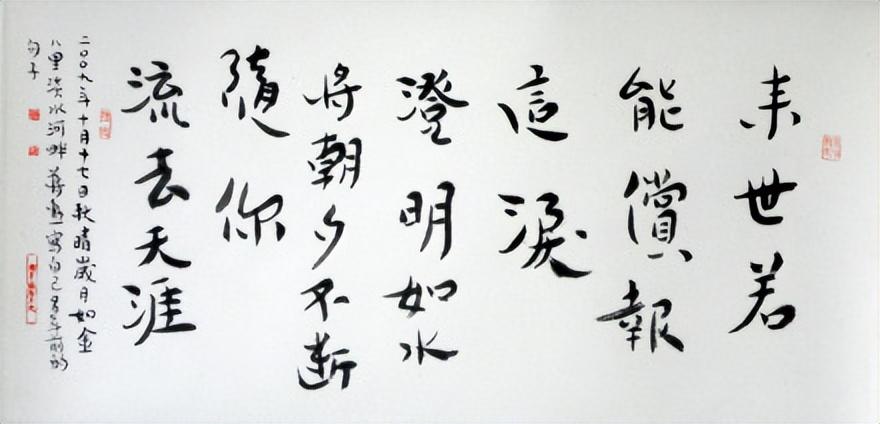 来世若
能償報
這淚
澄明如水
將朝夕不斷
隨你
流去天涯
二〇〇九年十月十七日秋晴歲月如金
八里淡水河畔蔣勳寫自己多年前的
句子